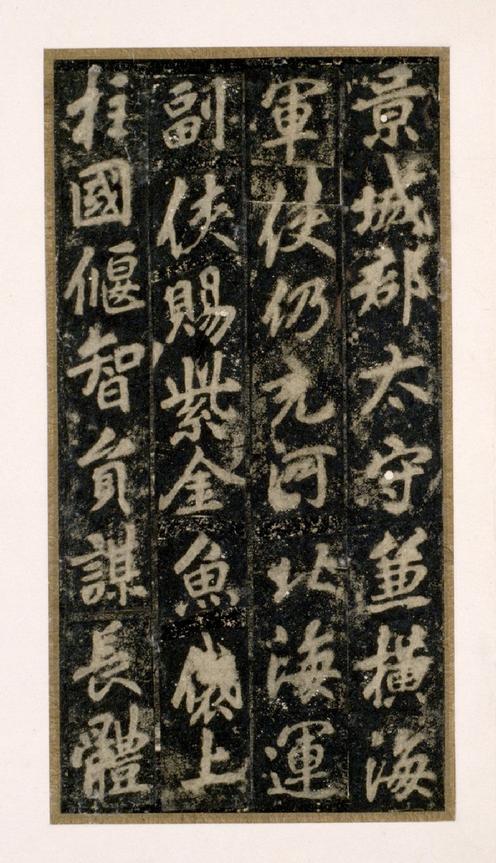 景城郡太守兼橫海
軍使仍充河北海運
副使賜紫金魚袋上
柱國偃智負謀長體